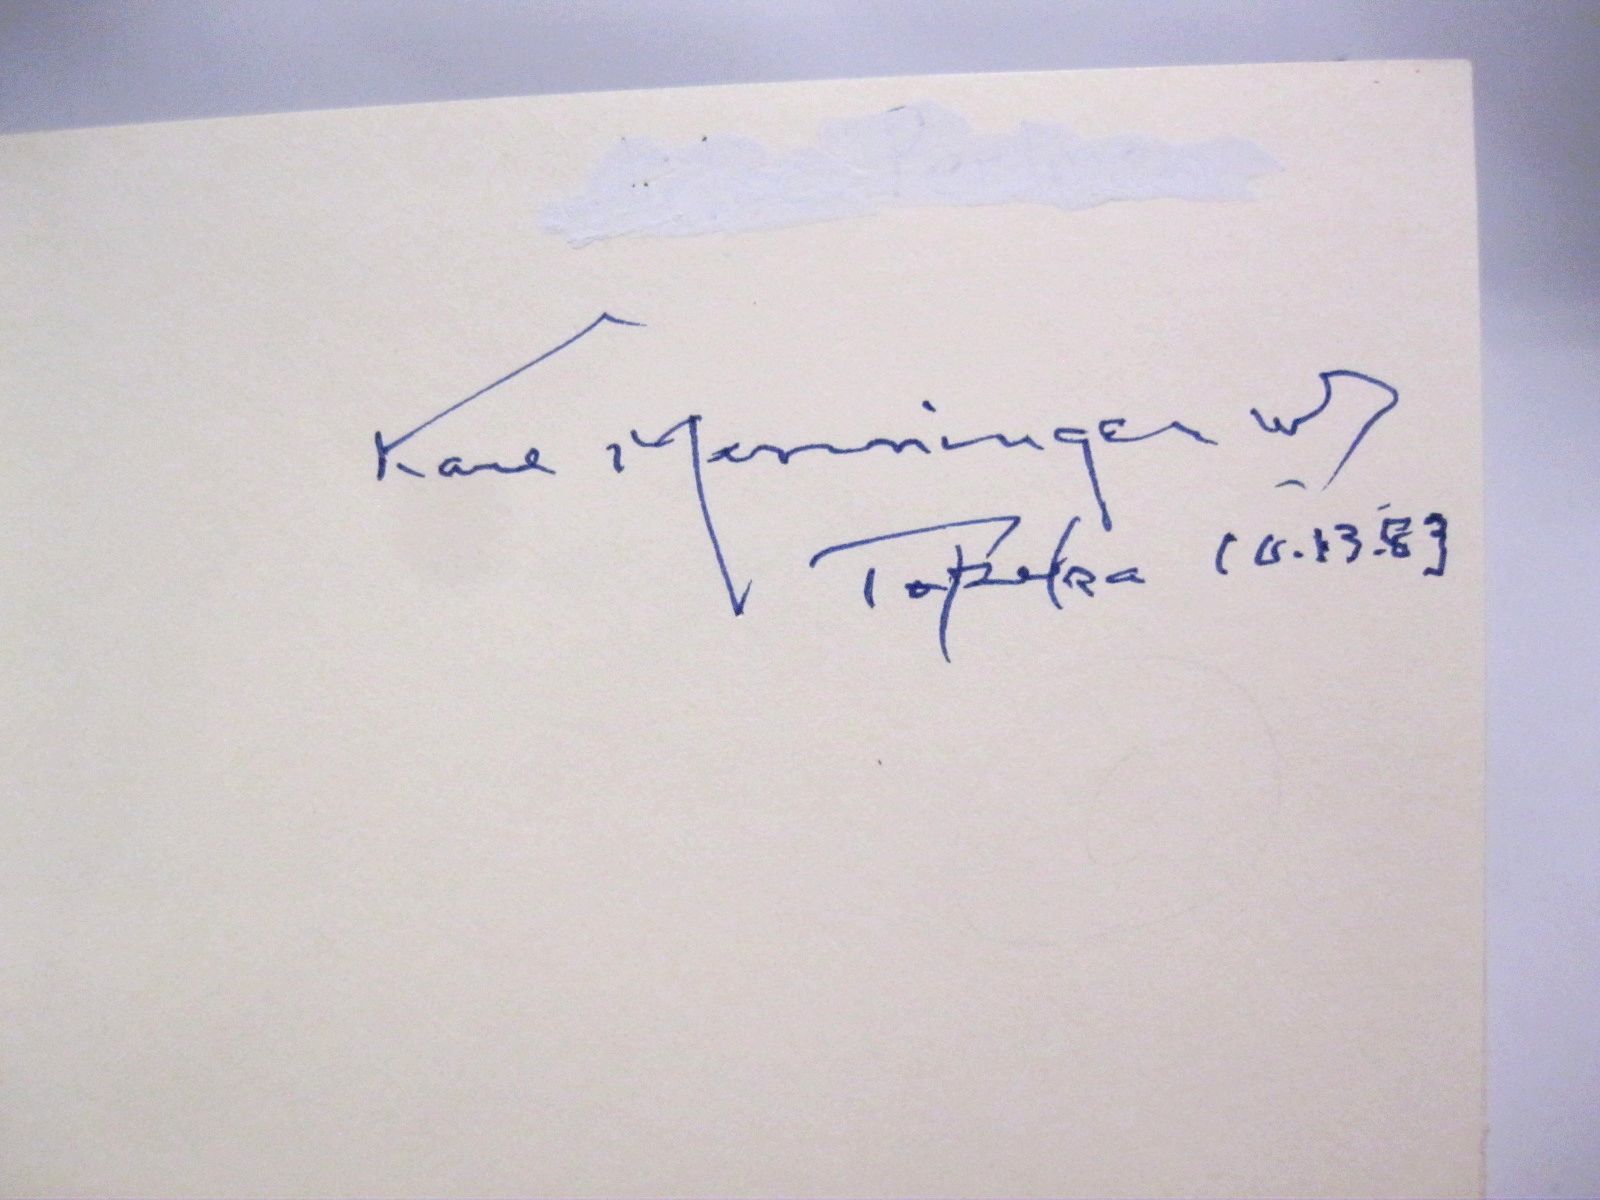 Karl Menninger MD
Topeka